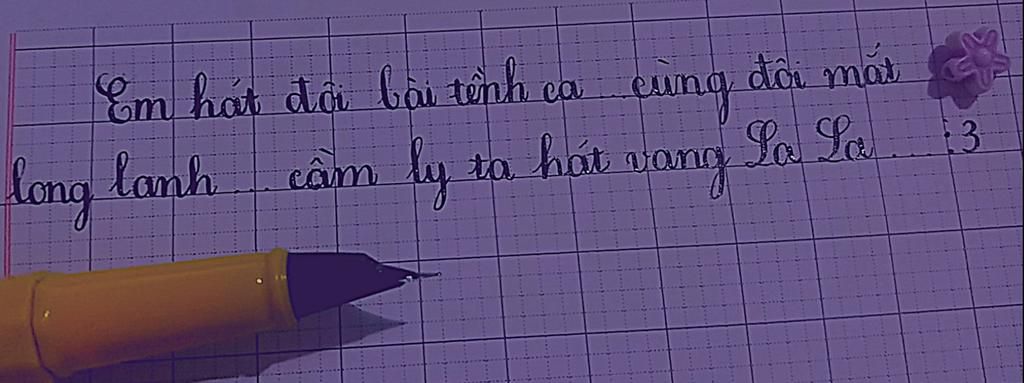 Em hát đôi bài tình ca cùng đôi mắt
long lanh... cầm ly ta hát vang La La... :3